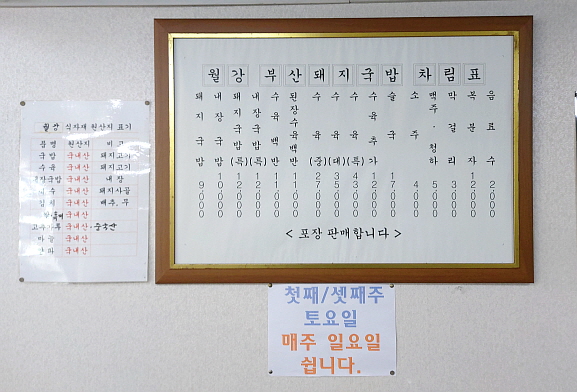 월강 부산돼지국밥 차림표
돼지국밥 9000
내장국밥 10000
돼지국밥(특) 12000
내장국밥(특) 12000
수육백반 11000
된장수육백반 11000
수육(중) 27000
수육(대) 35000
수육(특) 43000
수육추가 12000
술국 17000
소주 4000
맥주·청하 5000
막걸리 3000
음료수 2000
< 포장 판매합니다 >
월강 식자재 원산지 표기
품명 원산지 비고
국밥 국내산 돼지고기
수육 국내산 돼지고기
국내산 내장
육수 국내산 돼지사골
김치 국내산 배추, 무
국내산
고추가루 국내산·중국산
마늘 국내산
국내산
첫째/셋째주
토요일
매주 일요일
쉽니다.